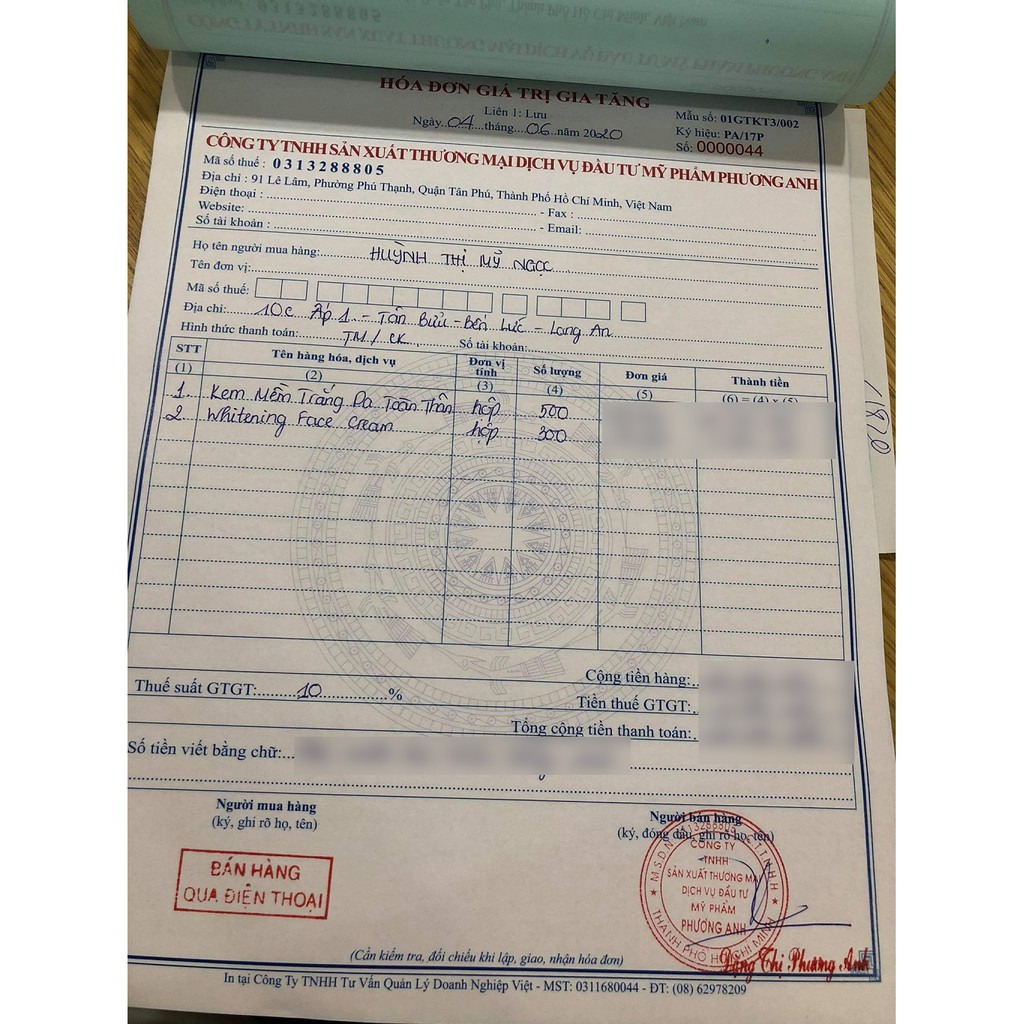 HÓA ĐƠN GIÁ TRỊ GIA TĂNG
Liên 1: Lưu
Ngày 04 tháng 06 năm 2020
Mẫu số: 01GTKT3/002
Ký hiệu: PA/17P
Số: 0000044
CÔNG TY TNHH SẢN XUẤT THƯƠNG MẠI DỊCH VỤ ĐẦU TƯ MỸ PHẨM PHƯƠNG ANH
Mã số thuế : 0313288805
Địa chỉ : 91 Lê Lâm, Phường Phú Thạnh, Quận Tân Phú, Thành Phố Hồ Chí Minh, Việt Nam
Điện thoại : - Fax :
Website: - Email:
Số tài khoản :
Họ tên người mua hàng: HUỲNH THỊ MỸ NGỌC
Tên đơn vị:
Mã số thuế:
Địa chỉ: 10c Ấp 1 - Tân Bửu - Bến Lức - Long An
Hình thức thanh toán: TM / CK Số tài khoản:
STT Tên hàng hóa, dịch vụ Đơn vị tính Số lượng Đơn giá Thành tiền
(1) (2) (3) (4) (5) (6) = (4) x (5)
1. Kem Mềm Trắng Da Toàn Thân hộp 500
2. Whitening Face Cream hộp 300
Cộng tiền hàng:
Thuế suất GTGT: 10 % Tiền thuế GTGT:
Tổng cộng tiền thanh toán:
Số tiền viết bằng chữ:
Người mua hàng
(ký, ghi rõ họ, tên)
Người bán hàng
(ký, đóng dấu, ghi rõ họ, tên)
BÁN HÀNG
QUA ĐIỆN THOẠI
M.S.D.N: 0313288805 - C.T.T.N.H.H
CÔNG TY
TNHH
SẢN XUẤT THƯƠNG MẠI
DỊCH VỤ ĐẦU TƯ
MỸ PHẨM
PHƯƠNG ANH
THÀNH PHỐ HỒ CHÍ MINH
Đặng Thị Phương Anh
(Cần kiểm tra, đối chiếu khi lập, giao, nhận hóa đơn)
In tại Công Ty TNHH Tư Vấn Quản Lý Doanh Nghiệp Việt - MST: 0311680044 - ĐT: (08) 62978209